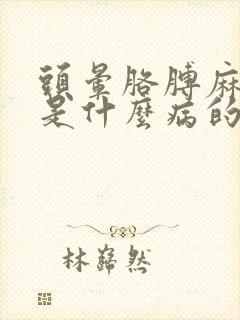 頭暈胳膊麻
是什麼病的
林巋然